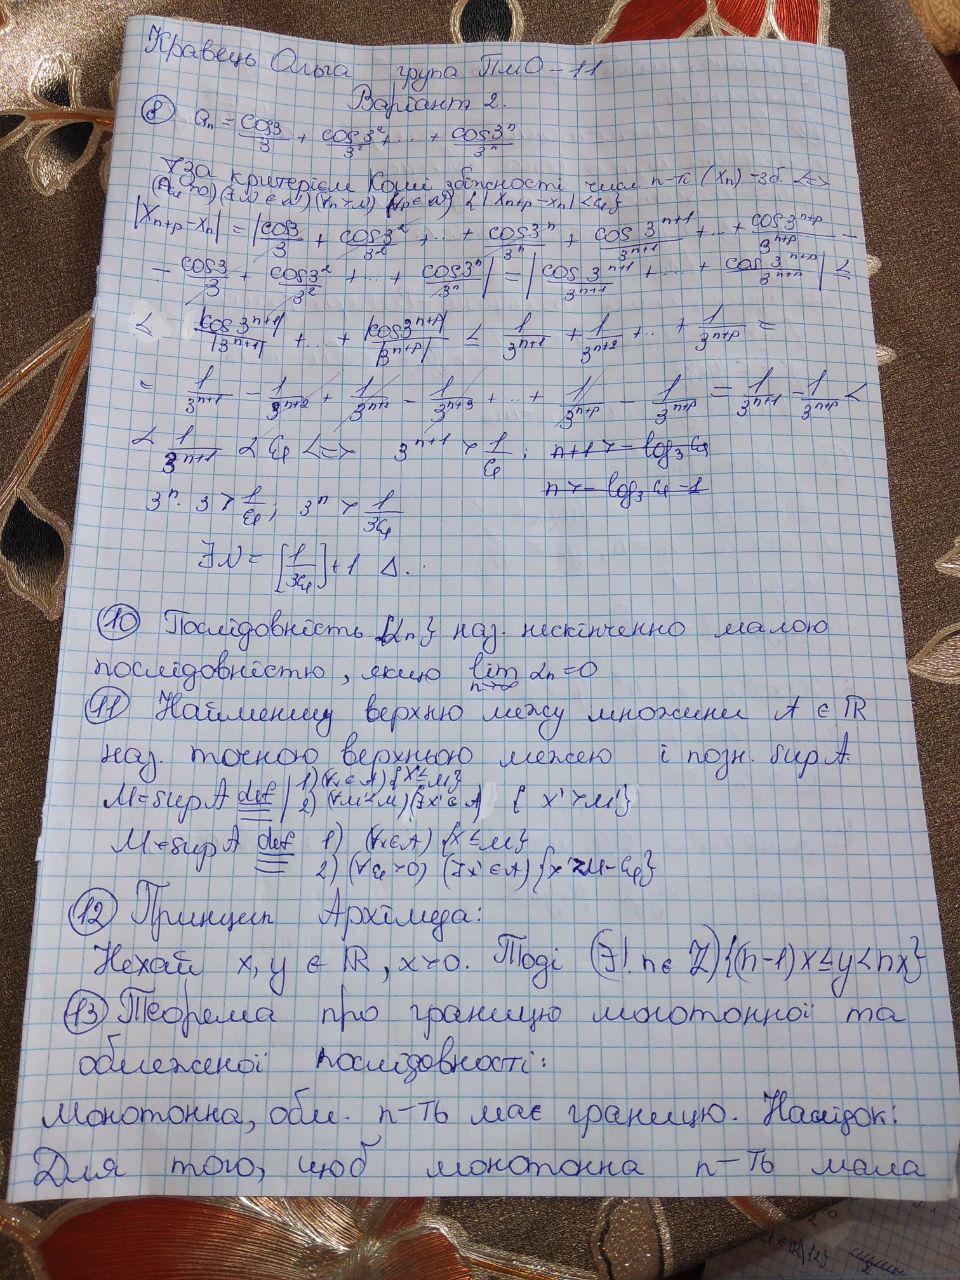 Кравець Ольга група ПмО-11
Варіант 2.
⑧ aₙ = cos3/3 + cos3²/3² + ... + cos3ⁿ/3ⁿ
∇ За критерієм Коші збіжності числ. п-ть (xₙ) - зб. <=>
(∀ε>0)(∃N∈ℕ)(∀n>N)(∀p∈ℕ){|xₙ₊ₚ-xₙ|<ε}
|xₙ₊ₚ-xₙ| = |cos3/3 + cos3²/3² + ... + cos3ⁿ/3ⁿ + cos3ⁿ⁺¹/3ⁿ⁺¹ + ... + cos3ⁿ⁺ᵖ/3ⁿ⁺ᵖ -
- cos3/3 + cos3²/3² + ... + cos3ⁿ/3ⁿ| = |cos3ⁿ⁺¹/3ⁿ⁺¹ + ... + cos3ⁿ⁺ᵖ/3ⁿ⁺ᵖ| ≤
< |cos3ⁿ⁺¹|/|3ⁿ⁺¹| + ... + |cos3ⁿ⁺ᵖ|/|3ⁿ⁺ᵖ| < 1/3ⁿ⁺¹ + 1/3ⁿ⁺² + ... + 1/3ⁿ⁺ᵖ =
= 1/3ⁿ⁺¹ - 1/3ⁿ⁺² + 1/3ⁿ⁺² - 1/3ⁿ⁺³ + ... + 1/3ⁿ⁺ᵖ - 1/3ⁿ⁺ᵖ = 1/3ⁿ⁺¹ - 1/3ⁿ⁺ᵖ <
< 1/3ⁿ⁺¹ < ε <=> 3ⁿ⁺¹ > 1/ε; n+1 > -log₃ε
n > -log₃ε-1
3ⁿ·3 > 1/ε; 3ⁿ > 1/3ε
∃N = [1/3ε]+1 Δ.
⑩ Послідовність {αₙ} наз. нескінченно малою
послідовністю, якщо lim n→∞ αₙ=0
⑪ Найменшу верхню межу множини A ∈ ℝ
наз. точною верхньою межею і позн. sup A
M=supA def | 1)(∀x∈A){x≤M}
2)(∀M'<M)(∃x'∈A) {x'>M'}
M=supA def 1) (∀x∈A){x≤M}
2)(∀ε>0) (∃x'∈A){x'>M-ε}
⑫ Принцип Архімеда:
Нехай x, y ∈ ℝ, x>0. Тоді (∃! n∈ℤ){(n-1)x≤y<nx}
⑬ Теорема про границю монотонної та
обмеженої послідовності:
Монотонна, обм. п-ть має границю. Наслідок:
Для того, щоб монотонна п-ть мала